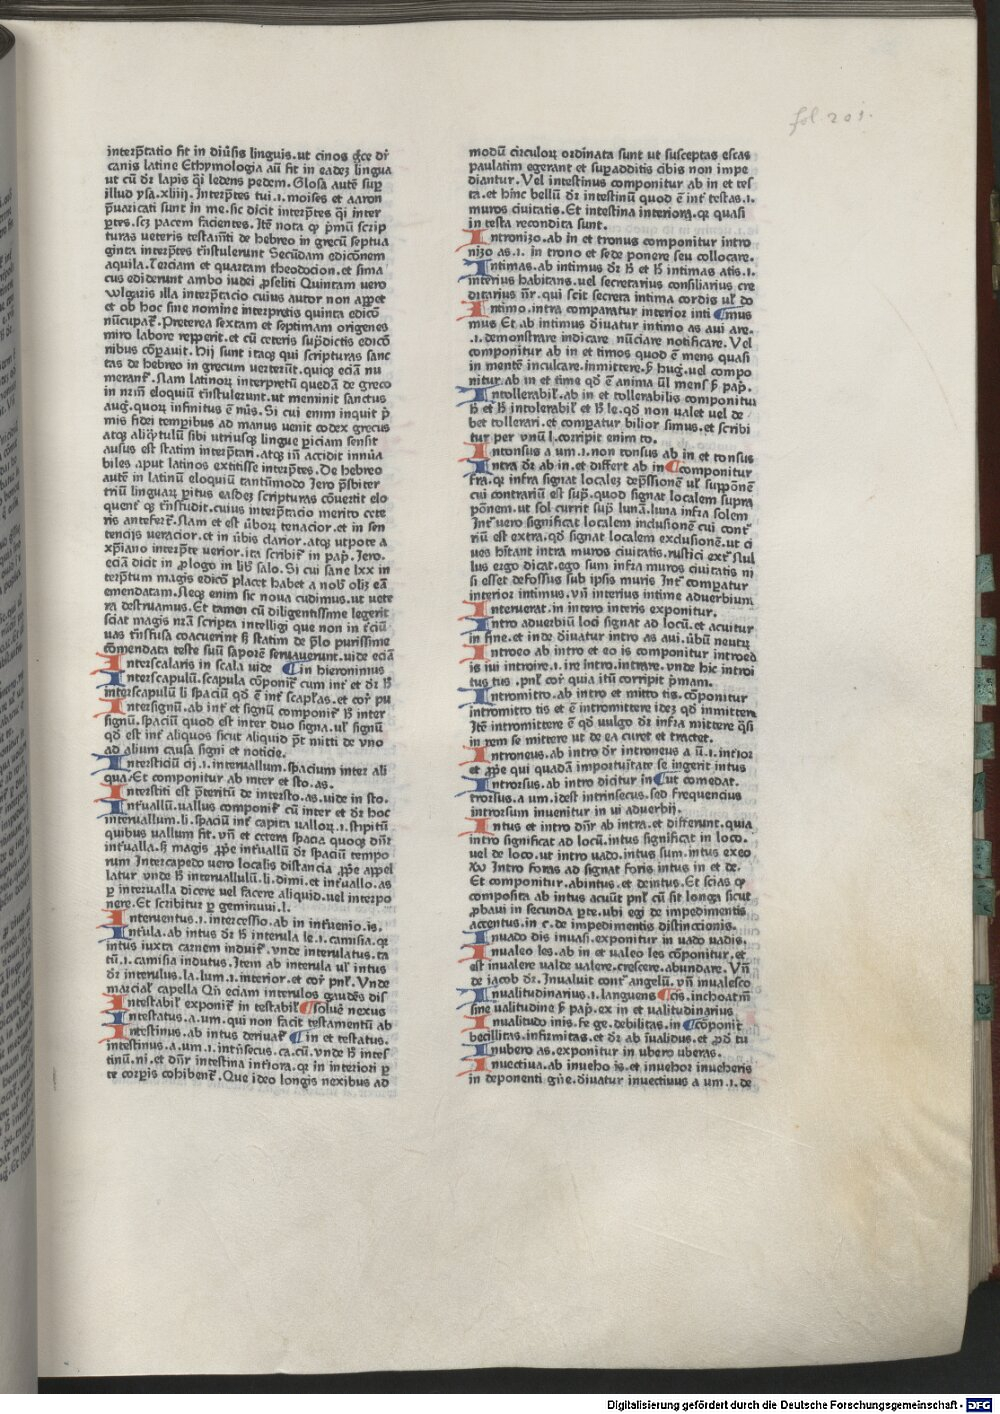 fol. 201.
interp̄tatio fit in diũsis linguis.ut cinos g̃ce dr̃
canis latine Ethymologia aũt fit in eadeʒ lingua
ut cũ dr̃ lapis q̃i ledens pedem. Glosa autē sup̱
illud ysa.xliij. Interp̄tes tui.ı.moises et aaron
p̄uaricati sunt in me.sic dicit interp̄tes q̃i inter
p̱tes.scʒ pacem facientes. Itē nota ꝙ p̄mũ scrip
turas ueteris testam̄ti de hebreo in grecũ septua
ginta interp̄tes tñstulerunt Secũdam edicõnem
aquila.Terciam et quartam theodocion.et sima
cus ediderunt ambo iudei p̱seliti Quintam uero
vulgaris illa interp̄tacio cuius autor non app̱et
et ob hoc sine nomine interpretis quinta edicõ
nũcupat᷑. Preterea sextam et septimam origenes
miro labore rep̱perit.et cũ ceteris sup̱dictis edicõ
nibus cõp̱auit. Hij sunt itaqꝫ qui scripturas sanc
tas de hebreo in grecum uerterũt.quiqꝫ eciã nu
merant᷑. Nam latinoꝝ interpretũ quedã de greco
in nr̃m eloquiũ tñstulerunt.ut meminit sanctus
aug᷑.quoꝝ infinitus ē nũs. Si cui enim inquit p̱
mis fidei temp̱ibus ad manus uenit codex grecus
atqꝫ aliq̃tulũ sibi utriusqꝫ lingue p̱iciam sensit
ausus est statim interp̄tari.atqꝫ iñ accidit innũa
biles aput latinos extitisse interp̄tes. De hebreo
autē in latinũ eloquiũ tantũmodo Jero p̄sbiter
triũ linguaꝝ p̱itus easdeʒ scripturas cõuertit elo
quent᷑ qꝫ tñstudit.cuius interp̄tacio merito cete
ris antefert᷑. Nam et est ũboꝝ tenacior.et in sen
tencijs ueracior.et in ũbis clarior.atqꝫ utpote a
xp̄iano interp̄te uerior.ita scribit᷑ in pap᷑. Jero.
eciã dicit in p̱logo in lib᷑ salo. Si cui sane lxx in
terp̄tum magis edicõ placet habet a nob᷑ olĩʒ eã
emendatam. Neqꝫ enim sic noua cudimus.ut uete
ra destruamus. Et tamen cũ diligentissime legerit
sciat magis nr̃ã scripta intelligi que non in t᷑ciũ
uas tñsfusa coacuerint sʒ statim de p̄lo purissime
cõmendata teste suũ saporē seruauerunt.uide eciã
Interscalaris in scala uide ¶in hieroninus
Interscapulũ.scapula cõponit᷑ cum int᷑ et dr̃ ħ
interscapulũ li spaciũ qđ ē int᷑ scapl̃as.et cor᷑ pu
Intersignũ.ab int᷑ et signũ componit᷑ ħ inter
signũ.spaciũ quod est inter duo signa.ul᷑ signũ
qđ est int᷑ aliquos sicut aliquid p̄t mitti de vno
ad alium causa signi et noticie.
Intersticiũ cij.ı.interuallum.spacium inter ali
qua.Et componitur ab inter et sto.as.
Interstiti est p̄teritũ de intersto.as.uide in sto.
Int᷑uallũ.uallus componit᷑ cũ inter et dr̃ hoc
interuallum.li.spaciũ int᷑ capita ualloꝝ.ı.stipitũ
quibus uallum fit.vñ et cetera spacia quoqꝫ dñr
int᷑ualla.sʒ magis p̱pe int᷑uallũ dr̃ spaciũ tempo
rum Intercapedo uero localis distancia p̱pe appel
latur vnde ħ interuallulũ.li.dimi.et int᷑uallo.as
p̱ interualla dicere uel facere aliquid.uel interpo
nere.Et scribitur p̱ geminuui.l.
Interuentus.ı.intercessio.ab in int᷑uenio.is.
Int᷑ula.ab intus dr̃ ħ interula le.ı.camisia.qꝛ
intus iuxta carnem induit᷑.vnde interulatus.ta
tũ.ı.camisia indutus.Item ab interula ul᷑ intus
dr̃ interulus.la.lum.ı.interior.et cor᷑ pnl᷑. Vnde
marcial᷑ capella Qñ eciam interulos gaudēs dis
Intestabil᷑ exponit᷑ in testabil᷑ ¶soluē nexus
Intestatus.a.um.qui non facit testamentũ ab
Intestinus.ab intus deriuat᷑ ¶in et testatus.
intestinus.a.um.ı.int᷑nsecus.ca.cũ.vnde ħ intes
tinũ.ni.et dñr intestina int᷑iora.qꝛ in interiori p̱
te corp̱is cohibent᷑.Que ideo longis nexibus ad
modũ circuloꝝ ordinata sunt ut susceptas escas
paulatim egerant et sup̱additis cibis non impe
diantur. Vel intestinus componitur ab in et tes
ta.et hinc bellũ dr̃ intestinũ quod ē int᷑ testas.ı.
muros ciuitatis. Et intestina interiora.qꝛ quasi
in testa recondita sunt.
Intronizo.ab in et tronus componitur intro
nizo as.ı. in trono et sede ponere seu collocare.
Intimas.ab intimus dr̃ ħ et ħ intimas atis.ı.
interius habitans.uel secretarius consiliarius cre
ditarius nr̃.qui scit secreta intima cordis ul᷑ do
Intimo.intra comparatur interior inti ¶mus
mus Et ab intimus diuatur intimo as aui are.
.ı.demonstrare indicare nũciare notificare. Vel
componitur ab in et timos quod ē mens quasi
in mentē inculcare.inmittere.sʒ hug᷑.uel compo
nitur.ab in et time qđ ē anima ul᷑ mens sʒ pap᷑.
Intollerabil᷑.ab in et tollerabilis componitur
ħ et ħ intolerabil᷑ et ħ le.qđ non ualet uel de
bet tollerari.et comp̱atur bilior simus.et scribi
tur per vnũ l.corripit enim to.
Intonsus a um.ı.non tonsus ab in et tonsus
Intra dr̃ ab in.et differt ab in ¶componitur
fra.qꝛ infra signat localeʒ dep̄ssionē ul᷑ supponē
cui contrariũ est sup᷑.quod signat localem supra
põnem.ut sol currit sup᷑ lunã.luna infra solem
Int᷑ uero significat localem inclusionē cui cont᷑
riũ est extra.qđ signat localem exclusionē.ut ci
ues hitant intra muros ciuitatis.rustici ext᷑ Nul
lus ergo dicat.ego sum infra muros ciuitatis ni
si esset defossus sub ipsis muris Int᷑ comp̱atur
interior intimus.vñ interius intime aduerbium
Interuerat.in intero interis exponitur.
Intro aduerbiũ loci signat ad locũ.et acuitur
in fine.et inde diuatur intro as aui.ũbũ neutꝝ
Introeo ab intro et eo is componitur introeo
is iui introire.ı.ire intro.intrare.vnde hic introi
tus tus .pnl᷑ cor᷑ quia itũ corripit p̄mam.
Intromitto.ab intro et mitto tis.cõponitur
intromitto tis et ē intromittere ideʒ qđ inmittere
Itē intromittere ē qđ uulgo dr̃ infra mittere q̃si
in rem se mittere ut de ea curet et tractet.
Introneus.ab intro dr̃ introneus a ũ.ı.int᷑ior
et p̱pe qui quadã importuĩtate se ingerit intus
Introrsus.ab intro dicitur in ¶ut comedat.
trorsus.a um.idest intrinsecus.sed frequencius
introrsum inuenitur in ui aduerbij.
Intus et intro dñr ab intra.et different.quia
intro significat ad locũ.intus significat in loco.
uel de loco.ut intro uado.intus sum.intus exeo
xv Intro foras ad signat foris intus in et de.
Et componitur.abintus.et deintus.Et scias ꝙ
composita ab intus acuũt pnl᷑ cũ sit longa sicut
p̱baui in secunda p̱te.ubi egi de impedimentis
accentus.in c.de impedimentis distinccionis.
Inuado dis inuasi.exponitur in uado uadis.
Inualeo les.ab in et ualeo les cõponitur.et
est inualere ualde ualere.crescere.abundare. Vñ
de iacob dr̃. Inualuit cont᷑ angelũ.vñ inualesco
Inualitudinarius.ı.languens ¶cis.inchoatm̃
sine ualitudine sʒ pap᷑.ex in et ualitudinarius
Inualitudo inis.fe ge.debilitas.in ¶cõponit᷑
becillitas.infirmitas.et dr̃ ab īualidus.et p̱d tu
Inubero as.exponitur in ubero uberas.
Inuectiua.ab inueho is.et inuehor inueheris
in deponenti gñe.diuatur inuectiuus a um.ı.de
Digitalisierung gefördert durch die Deutsche Forschungsgemeinschaft - DFG